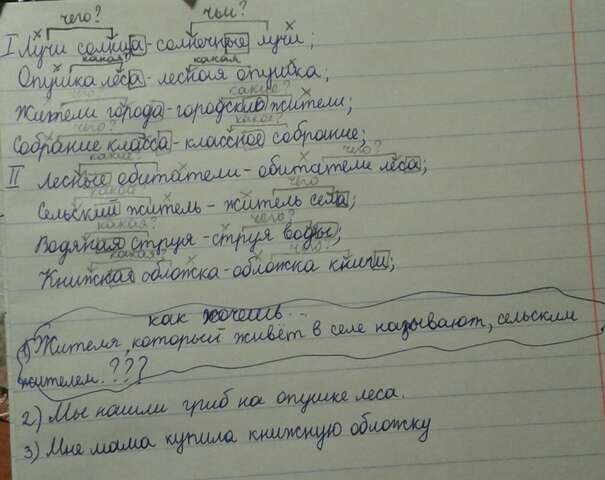 чего? чьи?
I Лучи солнца - солнечные лучи;
какая? какая
Опушка леса - лесная опушка;
какие?
Жители города - городские жители;
чего? какое?
Собрание класса - классное собрание;
какие? чего?
II Лесные обитатели - обитатели леса;
какой чего
Сельский житель - житель села;
какая? чего?
Водяная струя - струя воды;
какая? чего?
Книжная обложка - обложка книги;
как хочешь...
1) Жителя, который живёт в селе называют, сельским
жителем. ???
2) Мы нашли гриб на опушке леса.
3) Мне мама купила книжную обложку